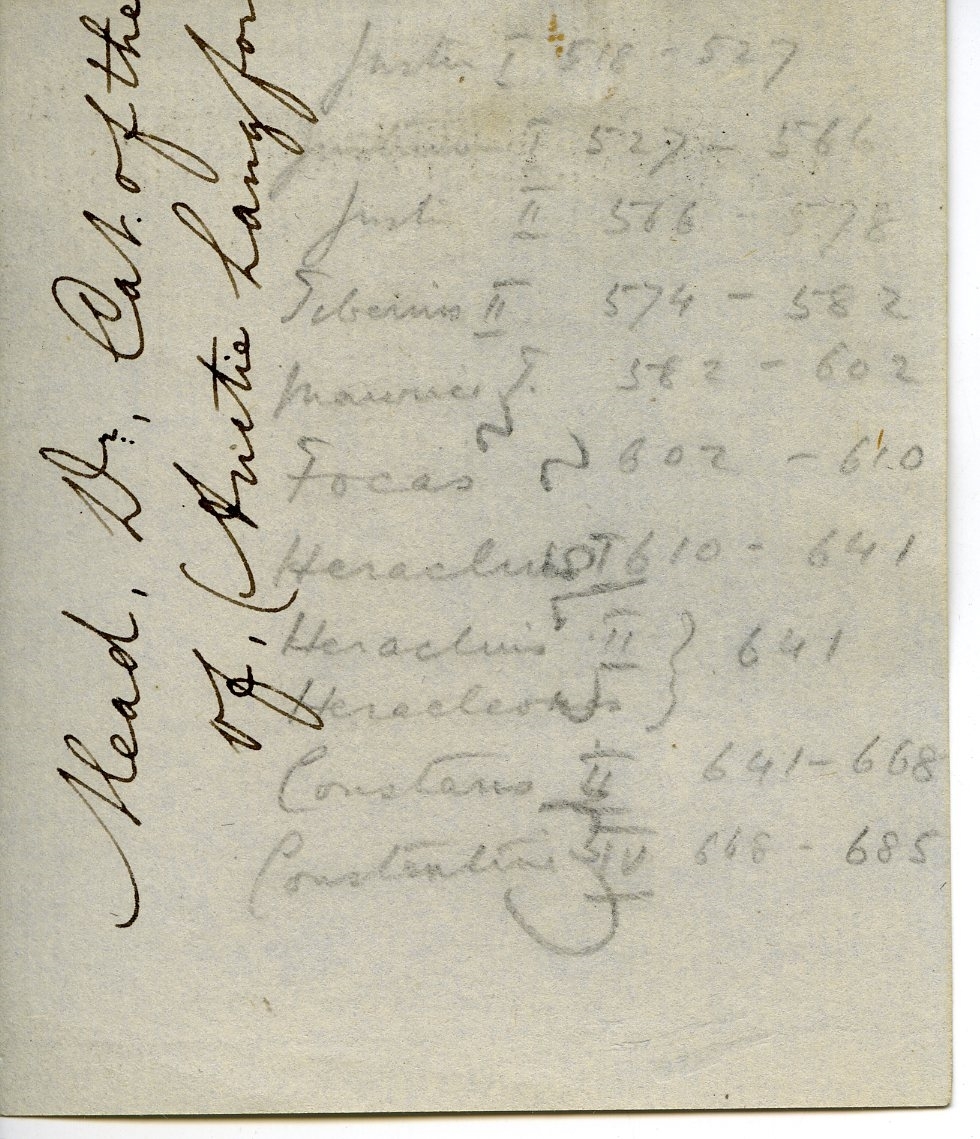 Mead, Dr., Cat. of the
of, (Amstie Langfor
Justin I 518 - 527
Justinian I 527 - 566
Justin II 566 - 578
Tiberius II 574 - 582
Maurice T. 582 - 602
Focas 602 - 610
Heraclius I 610 - 641
Heraclius II } 641
Heracleonas
Constans II 641 - 668
Constantine IV 668 - 685